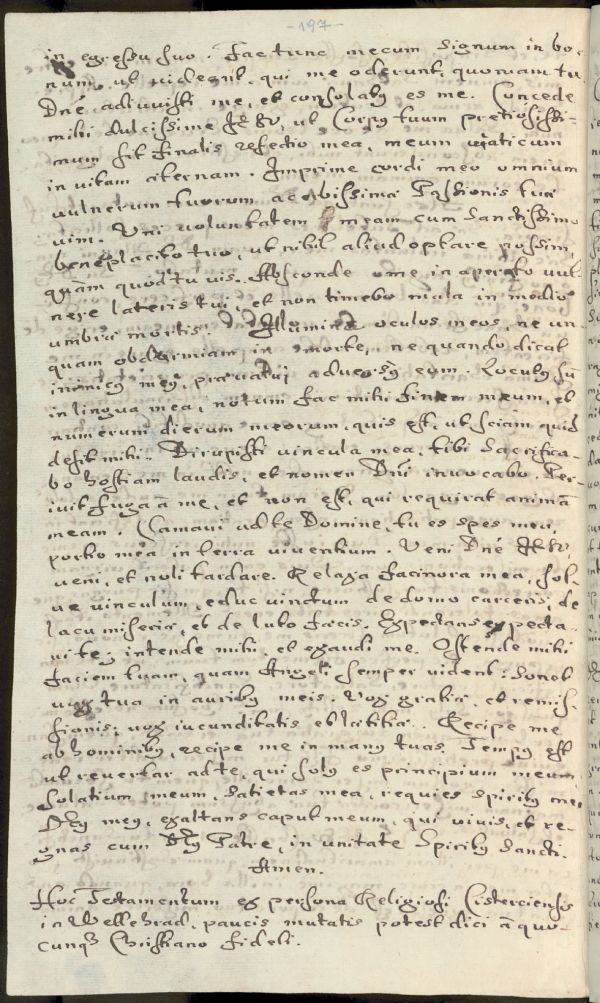 -197-
in egressu suo. Fac tunc mecum signum in bo-
num, ut videant, qui me oderunt, quoniam tu
Dne adiuvisti me, et consolatus es me. Concede
mihi dulcissime JESU, ut Corpus tuum pretiosissi-
mum sit finalis refectio mea, meum viaticum
in vitam aternam. Imprime cordi meo omnium
vulnerum tuorum acerbissima Passionis tua
vim. Uni voluntatem meam cum Sanctissimo
beneplacito tuo, ut nihil aliud optare possim,
quam quod tu vis. Absconde ome in aperto vul-
nere lateris tui, et non timebo mala in medio
umbra mortis. Illumina oculos meos, ne un-
quam obdormiam in morte, ne quando dicat
inimicus meus, pravalui adversus eum. Locutus su
in lingua mea, notum fac mihi finem meum, et
numerum dierum meorum, quis est, ut sciam quid
desit mihi. Dirupisti vincula mea, tibi Sacrifica-
bo hostiam laudis, et nomen Dni invocabo. Per-
ivit fuga a me, et non est, qui requirat anima
meam. Clamavi ad te Domine, tu es spes mea,
portio mea in terra viventium. Veni Dne JESU,
veni, et noli tardare. Relaxa facinora mea, Sol-
ve vinculum, educ vinctum de domo carceris, de
lacu miseria, et de luto facis. Expectans expecta-
vi te, intende mihi, et exaudi me. Ostende mihi
faciem tuam, quam Angeli semper vident: Sonet
vox tua in auribus meis. Vox gratia, et remis-
sionis; vox iucunditatis et latitia. Recipe me
ab hominibus, recipe me in manus tuas. Tempus est
ut revertar ad te, qui solus es principium meum
Solatium meum, Satietas mea, requies spiritus mei
Deus meus, exaltans caput meum, qui vivis, et re-
gnas cum Deo Patre, in unitate Spiritus Sancti.
Amen.
Hoc Testamentum ex persona Religiosi Cisterciensis
in Wellehrad, paucis mutatis potest dici a quo-
cunque Christiano fideli.